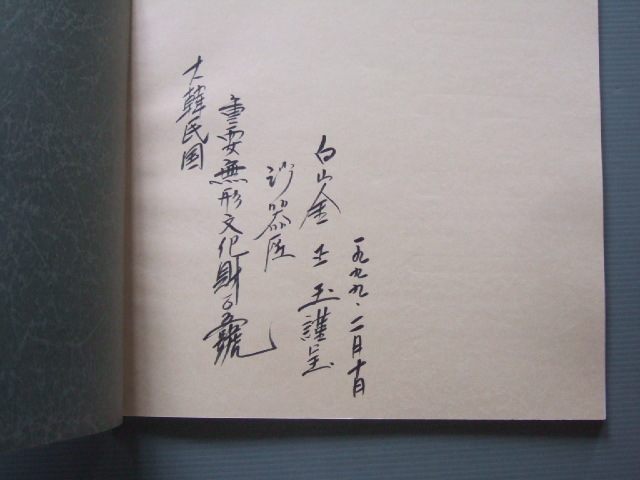 大韓民国
重要無形文化財百五號
沙器匠
白山金正玉謹呈
一九九九.二月十日